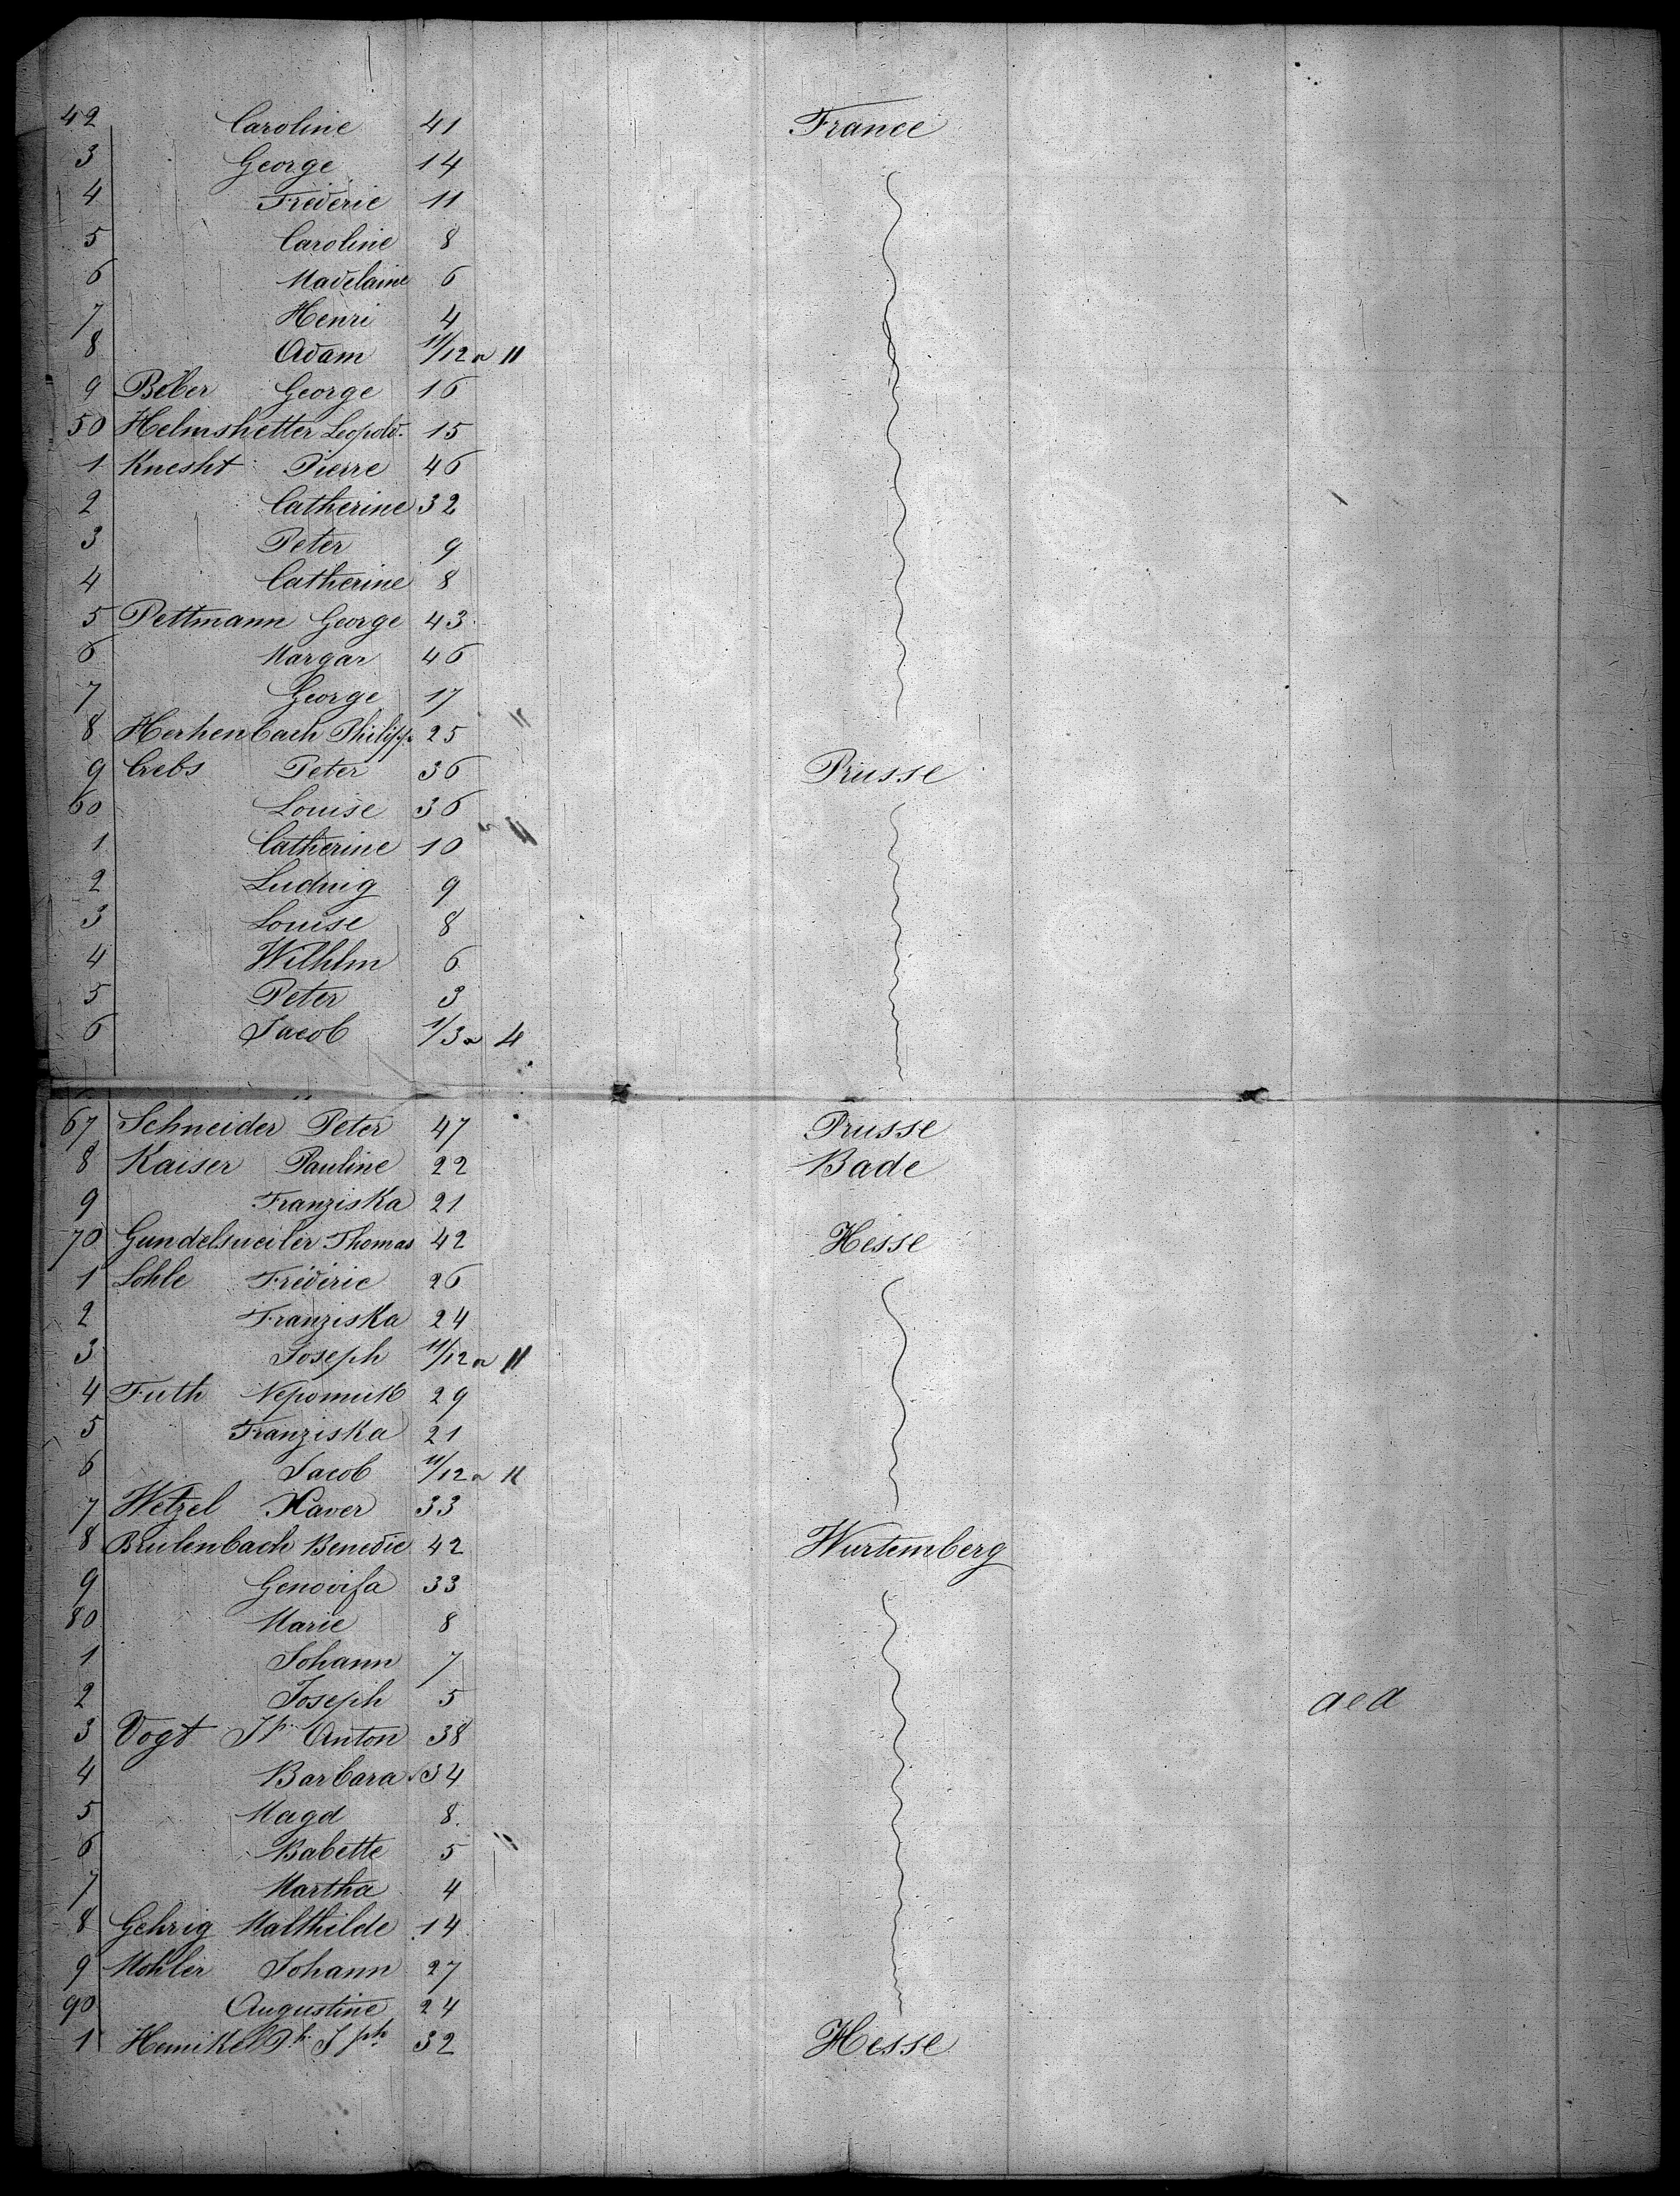 42 Caroline 41 France
3 George 14
4 Fréderic 11
5 Caroline 8
6 Madelaine 6
7 Henri 4
8 Adam 11/12 11
9 Beber George 16
50 Helmshetter Leopold. 15
1 Knesht Pierre 46
2 Catherine 32
3 Peter 9
4 Catherine 8
5 Pettmann George 43
6 Margar 46
7 George 17
8 Herhenbach Philipp 25
9 Crebs Peter 36 Prusse
60 Louise 36
1 Catherine 10
2 Ludwig 9
3 Louise 8
4 Wilhlm 6
5 Peter 3
6 Jacob 1/3 4
67 Schneider Peter 47 Prusse
8 Kaiser Pauline 22 Bade
9 Franziska 21
70 Gundelsweiler Thomas 42 Hesse
1 Lohle Fréderic 26
2 Franziska 24
3 Joseph 11/12 11
4 Futh Nepomuk 29
5 Franziska 21
6 Jacob 11/12 11
7 Wetzel Xaver 33
8 Brulenbach Benedic 42 Wurtemberg
9 Genovifa 33
80 Marie 8
1 Johann 7
2 Joseph 5
3 Vogt Jh Anton 38
4 Barbara 34
5 Magd 8
6 Babette 5
7 Martha 4
8 Gehrig Malthilde 14
9 Mohler Johann 27
90 Augustine 24
1 Jph 32 Hesse